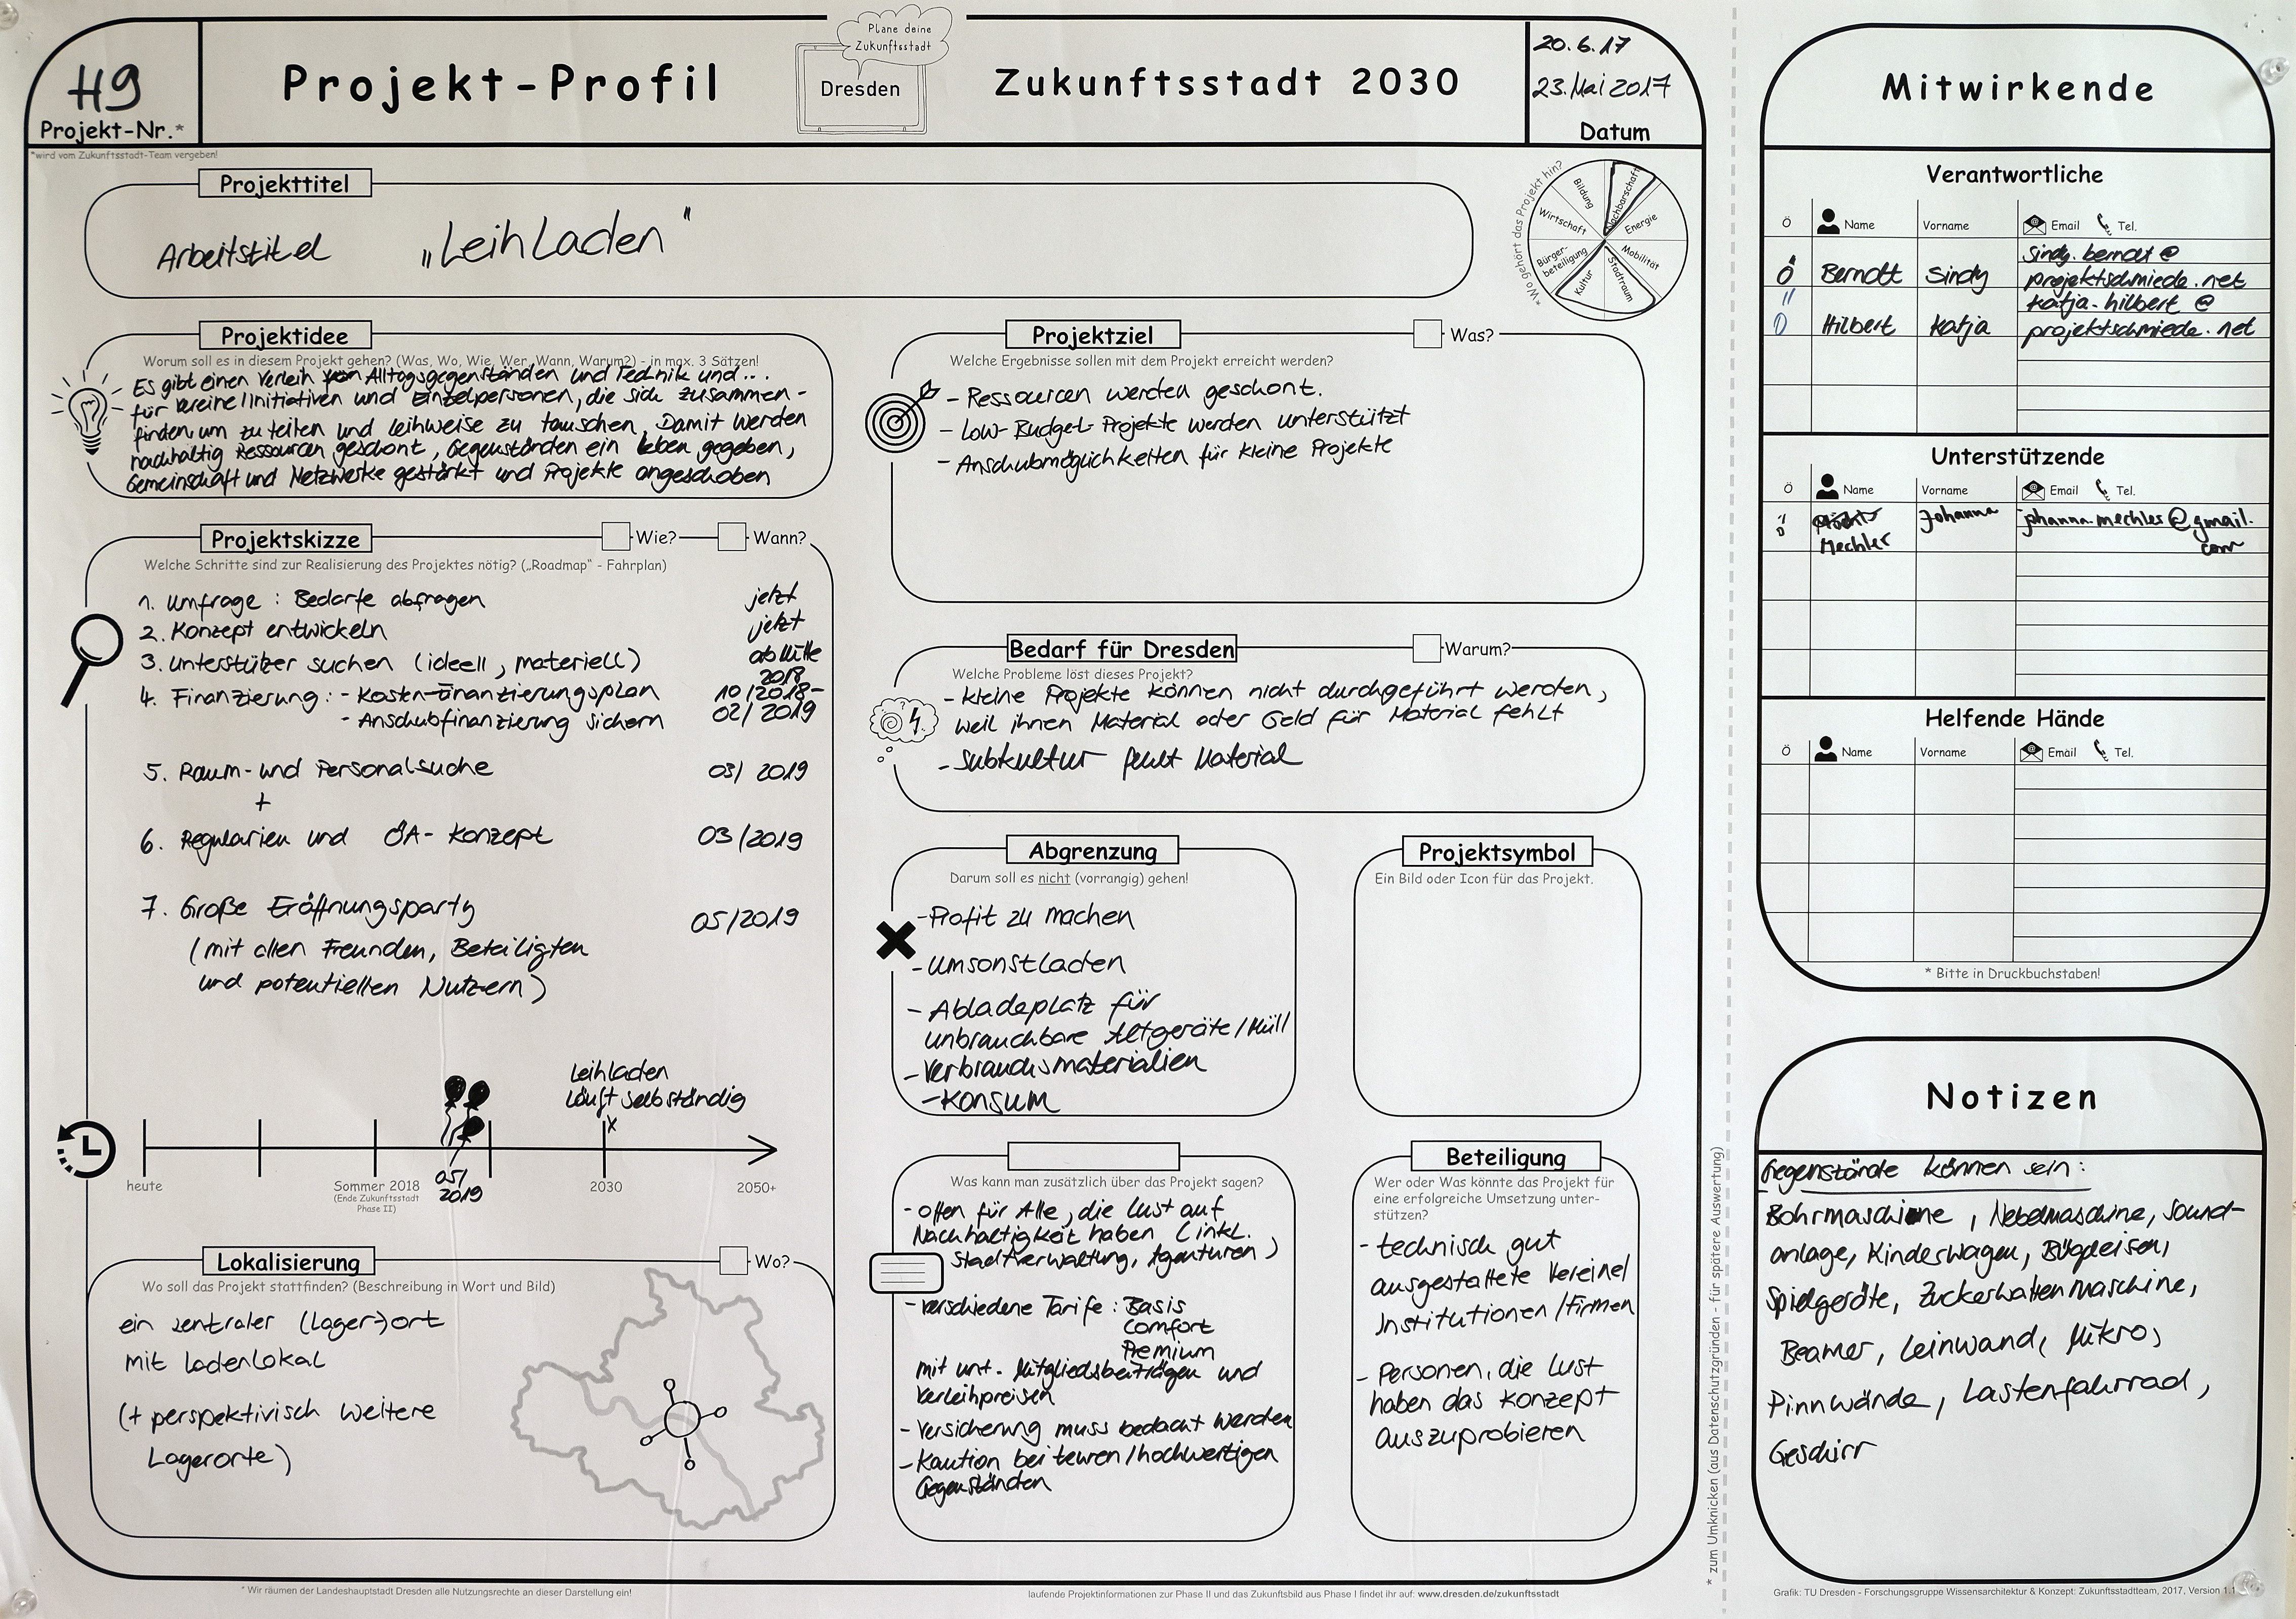 H9
Projekt-Nr.*
*wird vom Zukunftsstadt-Team vergeben!
Projekt-Profil
Plane deine
Zukunftsstadt
Dresden
Zukunftsstadt 2030
20.6.17
23. Mai 2017
Datum
Projekttitel
Arbeitstitel „Leihladen"
*Wo gehört das Projekt hin?
Bildung
Nachbarschaft
Energie
Mobilität
Stadtraum
Kultur
Bürger-
beteiligung
Wirtschaft
Projektidee
Worum soll es in diesem Projekt gehen? (Was, Wo, Wie, Wer, Wann, Warum?) - in max. 3 Sätzen!
Es gibt einen Verleih von Alltagsgegenständen und Technik und ...
für Vereine/Initiativen und Einzelpersonen, die sich zusammen-
finden, um zu teilen und leihweise zu tauschen. Damit werden
nachhaltig Ressourcen geschont, Gegenständen ein Leben gegeben,
Gemeinschaft und Netzwerke gestärkt und Projekte angeschoben
Projektskizze
Wie?
Wann?
Welche Schritte sind zur Realisierung des Projektes nötig? („Roadmap" - Fahrplan)
1. Umfrage : Bedarfe abfragen jetzt
2. Konzept entwickeln jetzt
3. Unterstützer suchen (ideell, materiell) ab Mitte 2018
4. Finanzierung : - Kosten-Finanzierungsplan 10/2018-
- Anschubfinanzierung sichern 02/2019
5. Raum- und Personalsuche 03/2019
+
6. Regularien und ÖA-Konzept 03/2019
7. Große Eröffnungsparty 05/2019
(mit allen Freunden, Beteiligten
und potentiellen Nutzern)
Leihladen
läuft selbständig
x
heute
Sommer 2018
(Ende Zukunftsstadt
Phase II)
05/
2019
2030
2050+
Lokalisierung
Wo?
Wo soll das Projekt stattfinden? (Beschreibung in Wort und Bild)
ein zentraler (Lager-)ort
mit Ladenlokal
(+ perspektivisch weitere
Lagerorte)
Projektziel
Was?
Welche Ergebnisse sollen mit dem Projekt erreicht werden?
- Ressourcen werden geschont.
- Low-Budget-Projekte werden unterstützt
- Anschubmöglichkeiten für kleine Projekte
Bedarf für Dresden
Warum?
Welche Probleme löst dieses Projekt?
- kleine Projekte können nicht durchgeführt werden,
weil ihnen Material oder Geld für Material fehlt
- Subkultur fehlt Material
Abgrenzung
Darum soll es nicht (vorrangig) gehen!
- Profit zu machen
- Umsonstladen
- Abladeplatz für
unbrauchbare Altgeräte/Müll
- Verbrauchsmaterialien
- Konsum
Projektsymbol
Ein Bild oder Icon für das Projekt.
Was kann man zusätzlich über das Projekt sagen?
- offen für Alle, die Lust auf
Nachhaltigkeit haben (inkl.
Stadtverwaltung, Agenturen)
- verschiedene Tarife : Basis
Comfort
Premium
mit unt. Mitgliedsbeiträgen und
Verleihpreisen
- Versicherung muss bedacht werden
- Kaution bei teuren/hochwertigen
Gegenständen
Beteiligung
Wer oder Was könnte das Projekt für
eine erfolgreiche Umsetzung unter-
stützen?
- technisch gut
ausgestattete Vereine/
Institutionen/Firmen
- Personen, die Lust
haben das Konzept
auszuprobieren
* Wir räumen der Landeshauptstadt Dresden alle Nutzungsrechte an dieser Darstellung ein!
laufende Projektinformationen zur Phase II und das Zukunftsbild aus Phase I findet ihr auf: www.dresden.de/zukunftsstadt
* zum Umknicken (aus Datenschutzgründen - für spätere Auswertung)
Mitwirkende
Verantwortliche
Ö Name Vorname Email Tel.
Ö Berndt Sindy sindy.berndt@
projektschmiede.net
Ö Hilbert Katja katja.hilbert@
projektschmiede.net
Unterstützende
Ö Name Vorname Email Tel.
Ö Mechler Johanna johanna.mechler@gmail.
com
Helfende Hände
Ö Name Vorname Email Tel.
* Bitte in Druckbuchstaben!
Notizen
Gegenstände können sein :
Bohrmaschine, Nebelmaschine, Sound-
anlage, Kinderwagen, Bügeleisen,
Spielgeräte, Zuckerwattenmaschine,
Beamer, Leinwand, Mikro,
Pinnwände, Lastenfahrrad,
Geschirr
Grafik: TU Dresden - Forschungsgruppe Wissensarchitektur & Konzept: Zukunftsstadtteam, 2017, Version 1.1